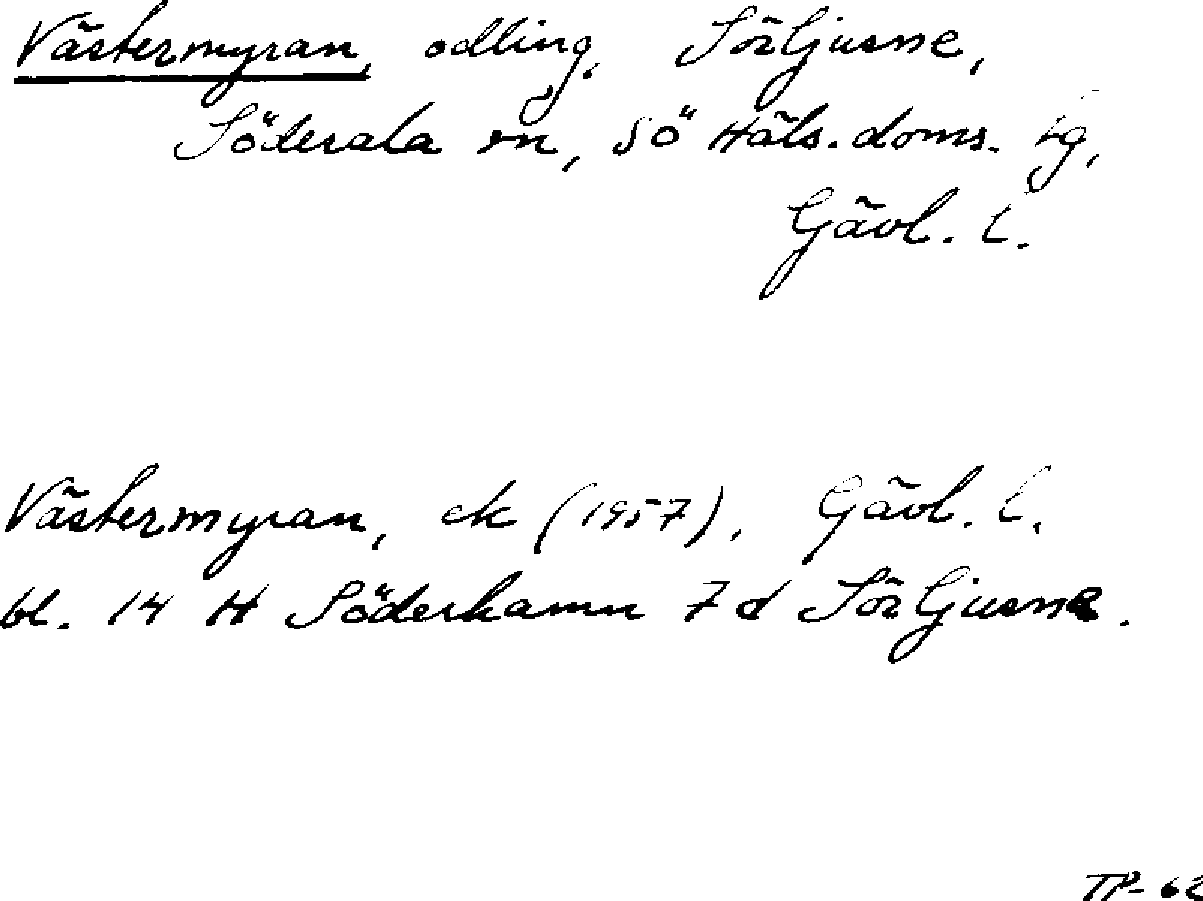 Västermyran, odling, Sörljusne,
Söderala sn, Sö Häls. doms. hg,
Gävl. l.
Västermyran, ek (1957), Gävl. l.
bl. 14 H Söderhamn 7d Sörljusne.
TP-62